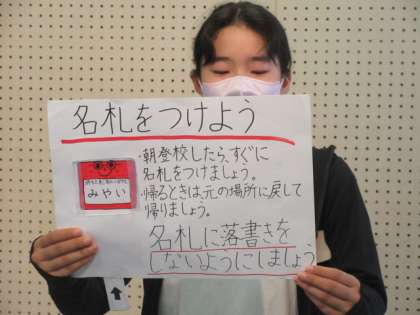 名札をつけよう
・朝登校したら、すぐに
名札をつけましょう。
みやい
・帰るときは、元の場所に戻して
帰りましょう。
名札に落書きを
しないようにしましょう